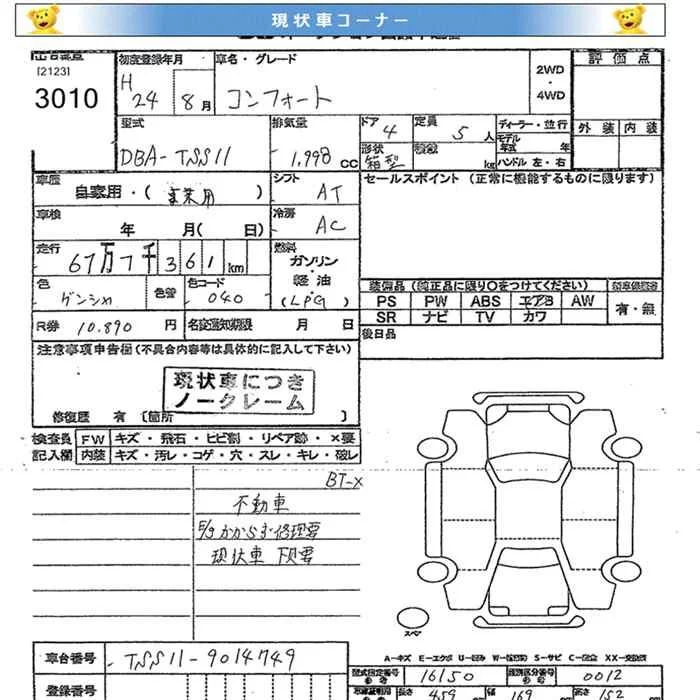 現状車コーナー
[2123]
3010
初度登録年月
H 24 8月
車名・グレード
コンフォート
2WD
・
4WD
評価点
外装 内装
型式
DBA-TSS11
排気量
1,998 CC
ドア
4
定員
5人
形状
箱型
積載
kg
ディーラー・並行
モデル
年式 年
ハンドル 左・右
車歴
自家用・(事業用)
シフト
AT
車検
年 月( 日)
冷房
AC
走行
67万7千361km
燃料
ガソリン
・
軽油
(LPG)
色
ゲンショク
色替
色コード
040
R券 10,890 円
名変通知期限 月 日
セールスポイント (正常に機能するものに限ります)
装備品 (純正品に限り○をつけてください)
PS PW ABS エアB AW
SR ナビ TV カワ
有・無
後日品
注意事項申告欄(不具合内容等は具体的に記入して下さい)
現状車につき
ノークレーム
修復歴 有 [箇所 ]
検査員 FW キズ・飛石・ヒビ割・リペア跡・×要
記入欄 内装 キズ・汚レ・コゲ・穴・スレ・キレ・破レ
BT-x
不動車
E/gかからず 修理要
現状車 下見要
スペア
A-キズ E-エクボ U-凹み W-補修跡 S-サビ C-腐蝕 XX-交換済
車台番号 TSS11-9014749
登録番号
型式指定番号 16150
類別区分番号 0012
長さ 459 幅 169 高さ 152